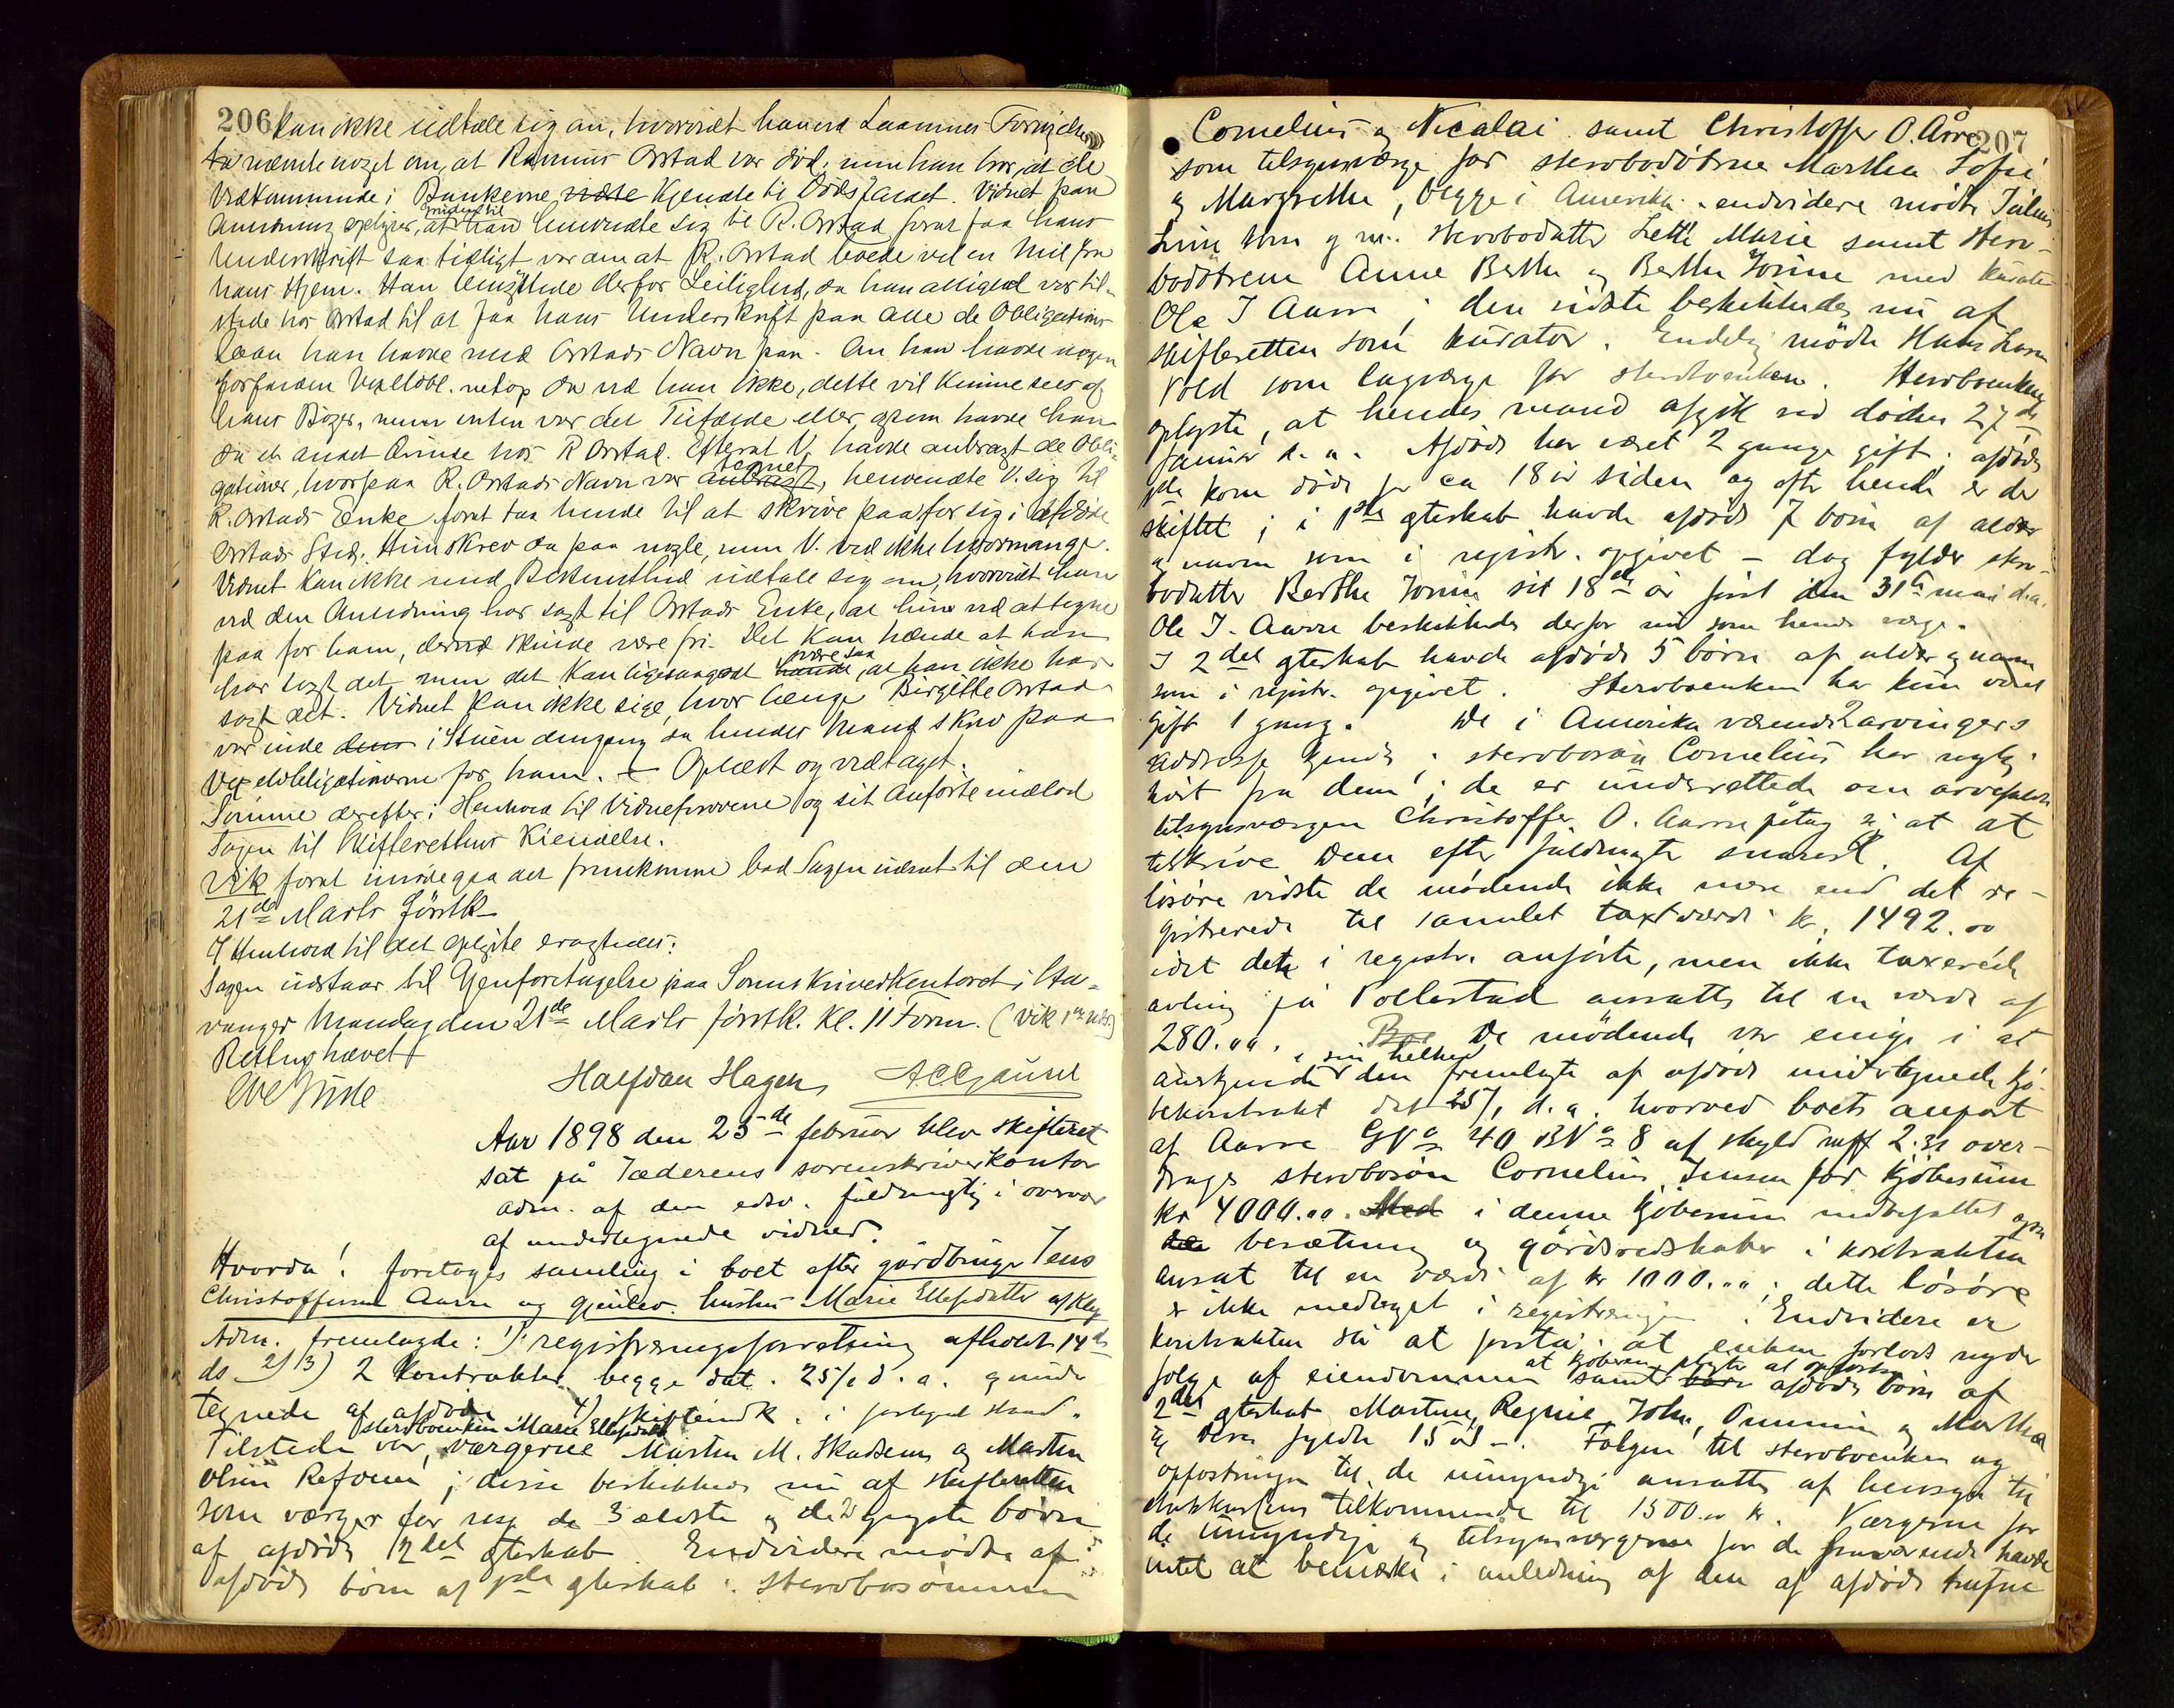 206
kan ikke udtale sig om, hvorvidt han ved Laanenes Fornyelse
da nævnte noget om, at Rasmus Orstad var død, men han tror, at de
Vedkommende i Bankerne vidste kjendte til Dødsfaldet. Vidnet paa
Anledning oplyser, at han henvendte sig til R. Orstad forat faa hans
Underskrift saa tidligt var om at R. Orstad boede vel en Mil fra
hans Hjem. Han benyttede derfor Leilighed, da han alligevel var til-
stede hos Orstad til at faa hans Underskrift paa alle de Obligations
laan han havde med Orstads Navn paa. Om han havde nogen
forfalden netop da ved han ikke, dette vil kunne sees af
hans Bøger, men enten var det Tilfælde eller ogsaa havde han
da et andet Ærinde hos R Orstad. Efterat V. havde anbragt de Obli-
gationer, hvorpaa R. Orstads Navn var anbragt tegnet, henvendte V. sig til
R. Orstads Enke forat faa hende til at skrive paa for sig i afdøde
Orstads Sted. Hun skrev da paa nogle, men V. ved ikke hvormange.
Vidnet kan ikke med Bestemthed udtale sig om, hvorvidt han
ved den Anledning har sagt til Orstads Enke, at hun ved at tegne
paa for ham, derved skulde være fri. Det kan hænde at han
har sagt det men det kan ligesaagodt hænde være saa, at han ikke har
sagt det. Vidnet kan ikke sige, hvor længe Birgitte Orstad
var inde i Stuen dengang da hendes Mand skrev paa
Vexelobligationerne for ham. — Oplæst og vedtaget.
Sømme derefter i Henhold til Vidneførerne og sit Anførte indlod
Sagen til Skifterettens Kjendelse.
Vik forat imødegaa det fremkomne bad Sagen udsat til den
21de Marts førstk.
I Henhold til det oplyste eragtedes:
Sagen udstaar til Gjenforetagelse paa Sorenskriverkontoret i Sta-
vanger Mandag den 21de Marts førstk. Kl. 11 Form. (Vik 1ste Uds.)
Retten hævet
Halfdan Hagen
Aar 1898 den 25de februar blev skifteret
sat på Jæderens sorenskriverkontor
adm. af den edsv. fuldmægtig i overvær
af undertegnede vidner.
Hvorda! foretages samling i boet efter gårdbruger Jens
Christoffersen Aarre og gjenlev. hustru Marie Ellefsdatter af Klep
Adm. fremlagde: 1) registreringsforretning afholdt 14de
ds 2) 3) 2 kontrakter begge dat. 25/1 d. a. og under
tegnede af afdøde 4) skifteindk. i forkynt stand.
Tilstede var stervboenken Marie Ellefsdatter, værgerne Morten M. Skadsem og Morten
Olsen Refsnes; disse beskikkedes nu af skifteretten
som værger for resp. de 3 ældste og de 2 yngste børn
af afdødes 2det ægteskab. Endvidere mødte af
afdødes børn af 1ste ægteskab: stervbosønnerne
207
Cornelius og Nicolai samt Christoffer O. Årre
som tilsynsværge for stervbodøtrene Martha Sofie
og Margrethe, begge i Amerika. endvidere mødte Julius
Line som g.m. stervbodatter Lette Marie samt sterv-
bodøtrene Anne Bertha og Berthe Jorine med kurator
Ole J Aarre; den sidste beskikkedes nu af
skifteretten som kurator. Endelig mødte Hans Larsen
Vold som lagværge for stervboenken. Stervboenken
oplyste, at hendes mand afgik ved døden 27de
januar d. a. Afdøde har været 2 gange gift. afdødes
1ste kone døde for ca 18 år siden og efter hende er der
skiftet; i 1ste ægteskab havde afdøde 7 børn af alder
og navn som i registr. opgivet — dog fylder sterv-
bodatter Berthe Jorine sit 18de år først den 31te mai d.a.
Ole J. Aarre beskikkedes derfor nu som hendes værge.
I 2det ægteskab havde afdøde 5 børn af alder og navn
som i registr. opgivet. Stervboenken har kun været
gift 1 gang. De i Amerika værende 2 arvingers
addresse kjendes; stervbosøn Cornelius har nylig
hørt fra dem; de er underrettede om arvefaldet
tilsynsværgen Christoffer O. Aarre påtog sig at
tilskrive dem efter fuldmagter snarest. Af
løsøre vidste de mødende ikke mere end det re-
gistrerede til samlet taxtværdi kr. 1492.00
idet dette i registr. anførte, men ikke taxerede
avling på Pollestad ansattes til en værdi af
280.00. De mødende var enige i at
anerkjende i sin helhed den fremlagte af afdøde undertegnede kjø-
bekontrakt dat 25/1 d. a. hvorved boets anpart
af Aarre GNo 40 BNo 8 af skyld mrk 2.31 over-
drages stervbosøn Cornelius Jensen for kjøbesum
kr 4000.00. Med i denne kjøbesum indbefattet også
besætning og gårdsredskaber i kontrakten
ansat til en værdi af kr 1000.00; dette løsøre
er ikke medtaget i registreringen. Endvidere er
kontrakten så at forstå, at enken forlods nyder
følge af eiendommen samt at kjøberen pligter at opfostre afdødes børn af
2det ægteskab Martine, Regine, Johan, Ommund og Martha
til deres fyldte 15 år —. Følgen til stervboenken og
opfostringen til de umyndige ansattes af hensyn til
statskassens tilkommende til 1500.00 kr. Værgerne for
de umyndige og tilsynsværgerne for de fraværende havde
intet at bemærke i anledning af den af afdøde trufne